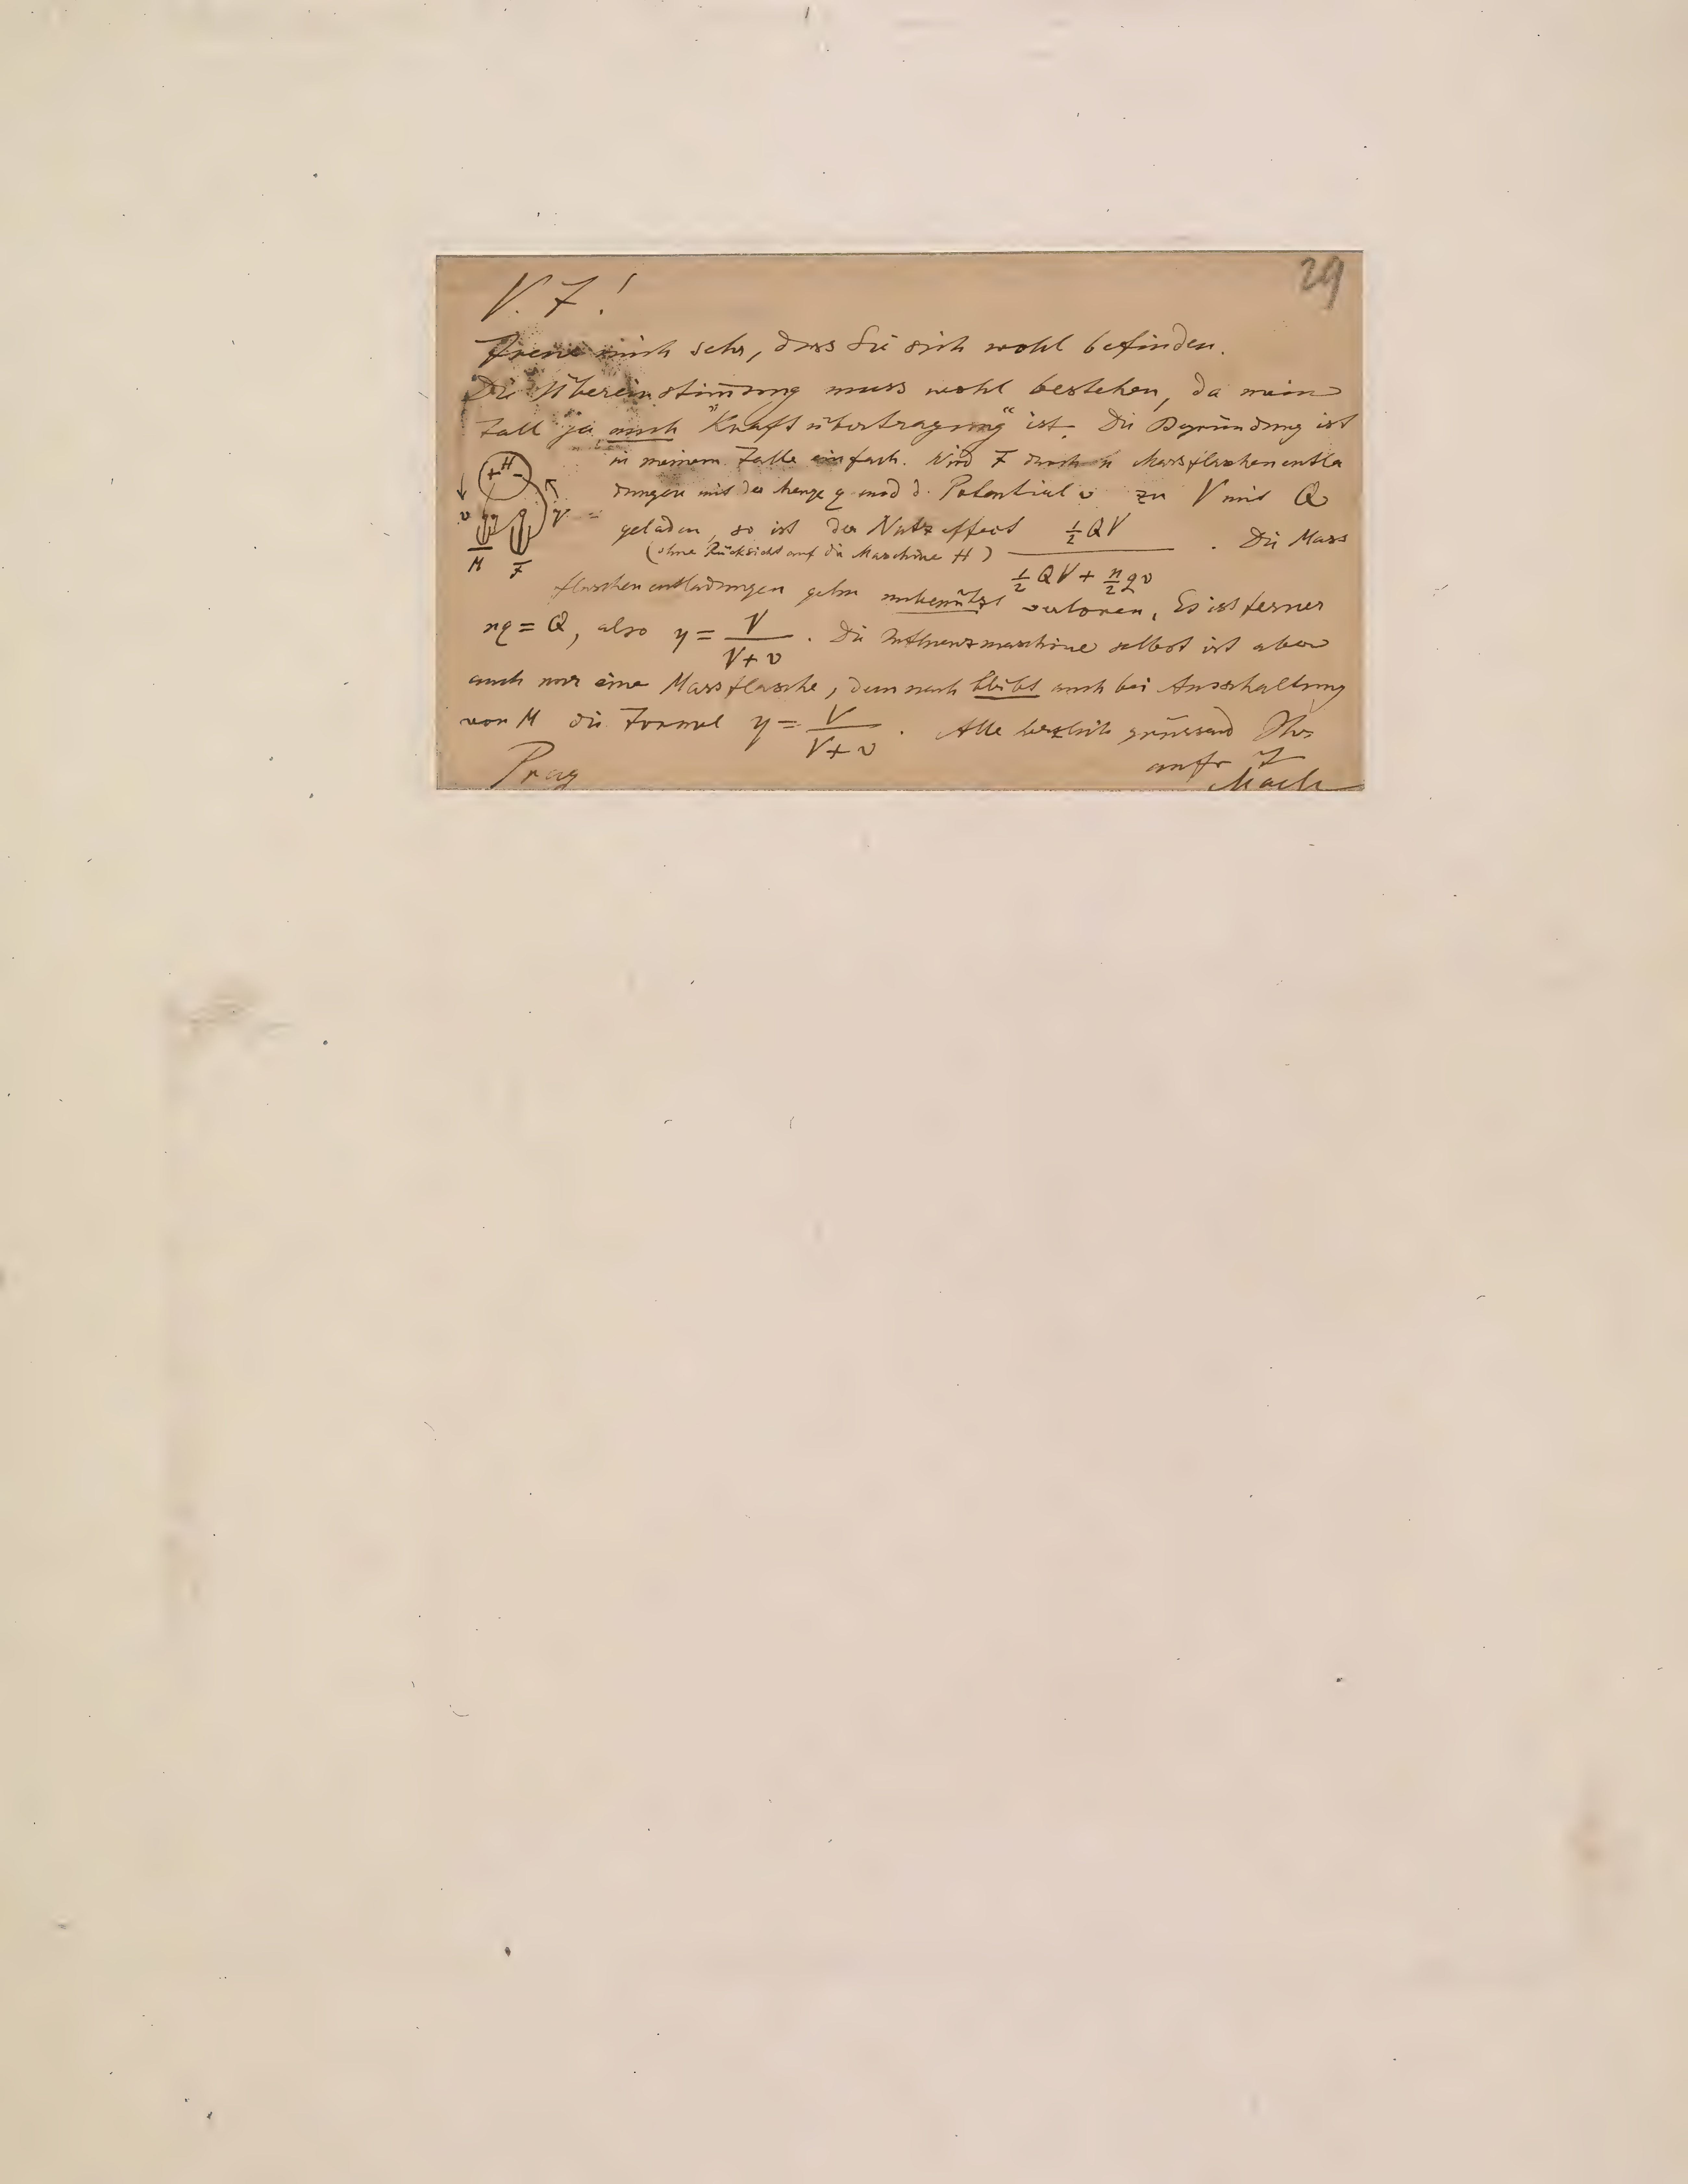 29
V. F!
Freue mich sehr, dass Sie sich wohl befinden.
Die Übereinstim̄ung muss wohl bestehen, da mein
Fall ja auch "Kraftübertragung" ist. Die Begründung ist
in meinem Falle einfach. Wird F durch n Massflaschenentla
dungen mit der Menge q und d. Potential v zu V mit Q
geladen, so ist der Nutzeffect ½QV / (½QV + n/2 qv). Die Mass
(ohne Rücksicht auf die Maschine H)
flaschenentladungen gehn unbenützt verloren. Es ist ferner
nq = Q, also η = V/(V+v). Die Influenzmaschine selbst ist aber
auch nur eine Massflasche, demnach bleibt auch bei Ausschaltung
von M die Formel η = V/(V+v). Alle herzlich grüssend Ihr
Prag
aufr F
Mach
+ H -
v V
M F